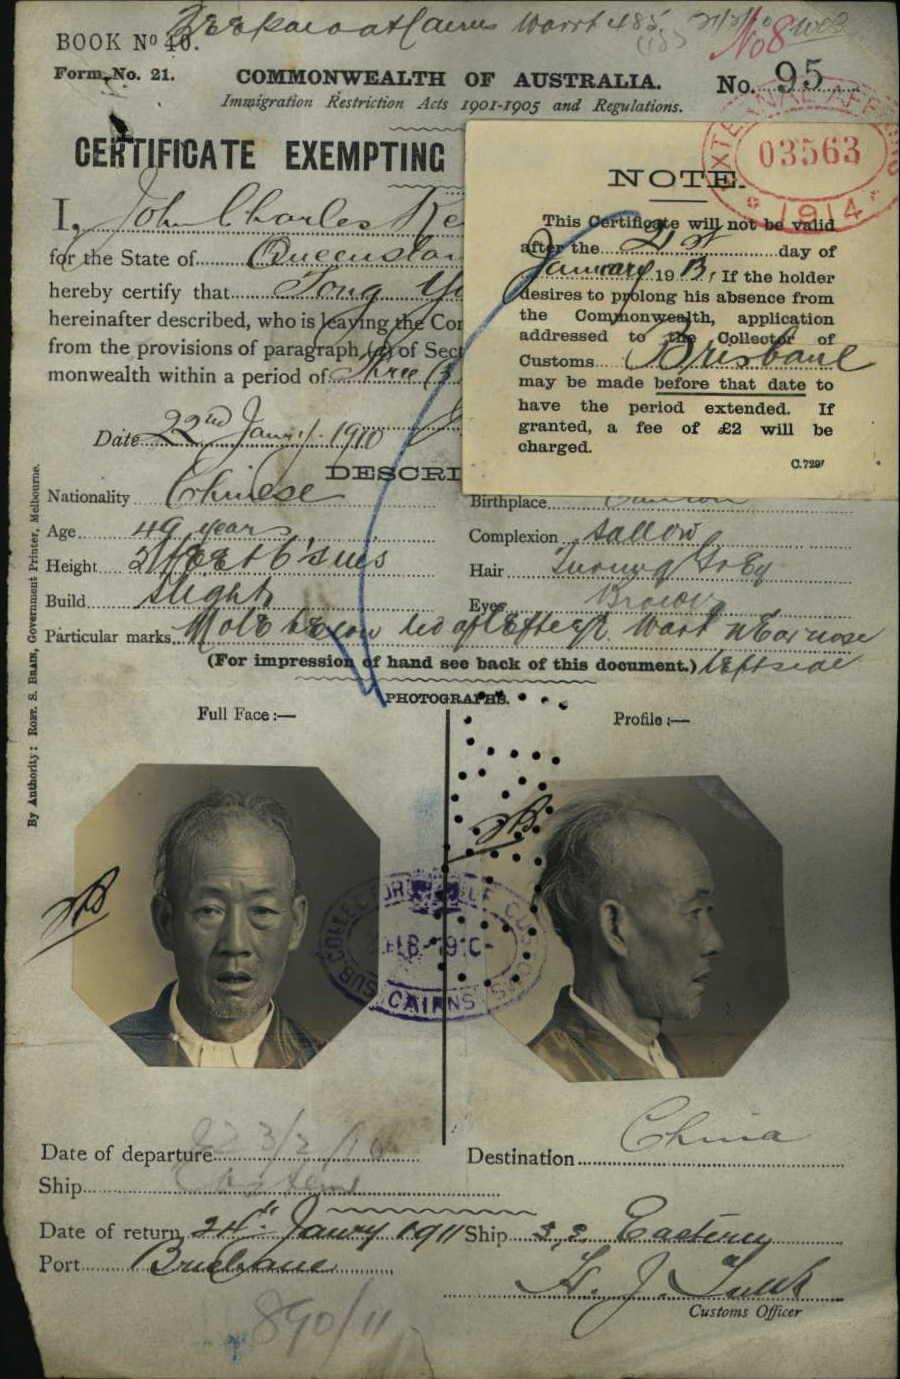 BOOK No 40.
Cairns Warrt 485.
No 8
Form No. 21.
COMMONWEALTH OF AUSTRALIA.
No. 95
Immigration Restriction Acts 1901-1905 and Regulations.
CERTIFICATE EXEMPTING
I, John Charles Ke
for the State of Queenslan
hereby certify that Tong Y
hereinafter described, who is leaving the Com
from the provisions of paragraph of Sect
monwealth within a period of Three
Date 22nd Jany 1910
EXTERNAL AFFAIRS
03563
1914
NOTE.
This Certificate will not be valid
after the 21st day of
January 1913. If the holder
desires to prolong his absence from
the Commonwealth, application
addressed to the Collector of
Customs Brisbane
may be made before that date to
have the period extended. If
granted, a fee of £2 will be
charged.
C.7297
DESCRI
Nationality Chinese
Birthplace Canton
Age 49 years
Complexion Sallow
Height 5 feet 6 ins
Hair Turning Grey
Build Slight
Eyes Brown
Particular marks Mole below lid of left eye. Wart near nose
left side
(For impression of hand see back of this document.)
PHOTOGRAPHS.
Full Face:—
Profile:—
By Authority: ROBT. S. BRAIN, Government Printer, Melbourne.
SUB COLLECTOR OF CUSTOMS
FEB 1910
CAIRNS
Date of departure
Destination China
Ship Eastern
Date of return 24th Jany 1911 Ship S.S. Eastern
Port Brisbane
H. J.
Customs Officer
890/11